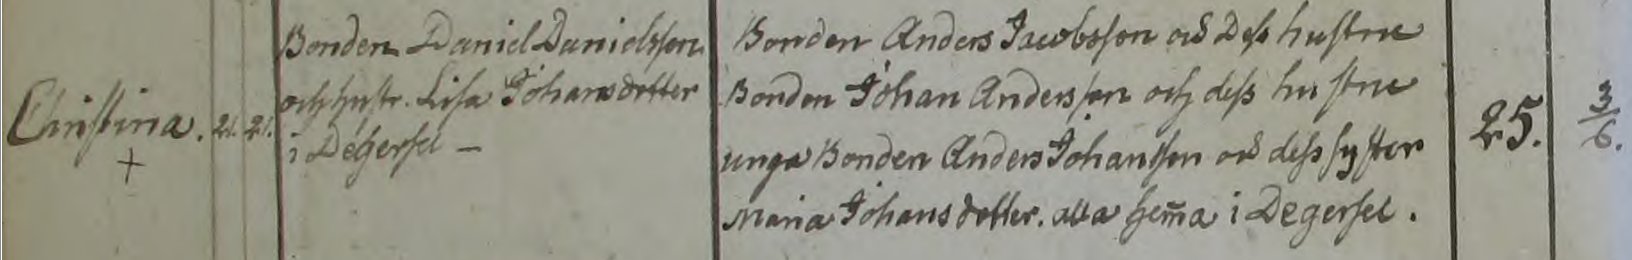 Christina. 21. 21.
+
Bonden Daniel Danielsson
och hustr. Lisa Johansdotter
i Degersel —
Bonden Anders Jacobsson och dess hustru
Bonden Johan Andersson och dess hustru
unga Bonden Anders Johansson och dess syster
Maria Johansdotter. alla hem̄a i Degersel.
25.
3/6.